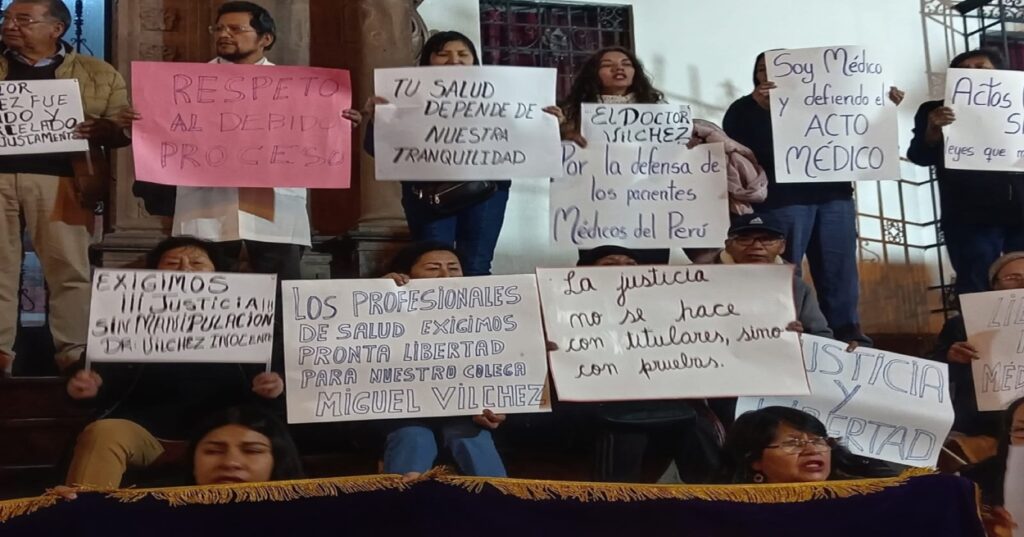 FUE
DO Y
ELADO
USTAMENTE
RESPETO
AL DEBIDO
PROCESO
TU SALUD
DEPENDE DE
NUESTRA
TRANQUILIDAD
EL DOCTOR
VILCHEZ
Por la defensa de
los pacientes
Médicos del Perú
Soy Médico
y defiendo el
ACTO
MÉDICO
Actos
eyes que m
EXIGIMOS
!!! JUSTICIA !!!
SIN MANIPULACION
DR. VILCHEZ INOCENTE
LOS PROFESIONALES
DE SALUD EXIGIMOS
PRONTA LIBERTAD
PARA NUESTRO COLEGA
MIGUEL VILCHEZ
La justicia
no se hace
con titulares, sino
con pruebas.
JUSTICIA
Y
LIBERTAD